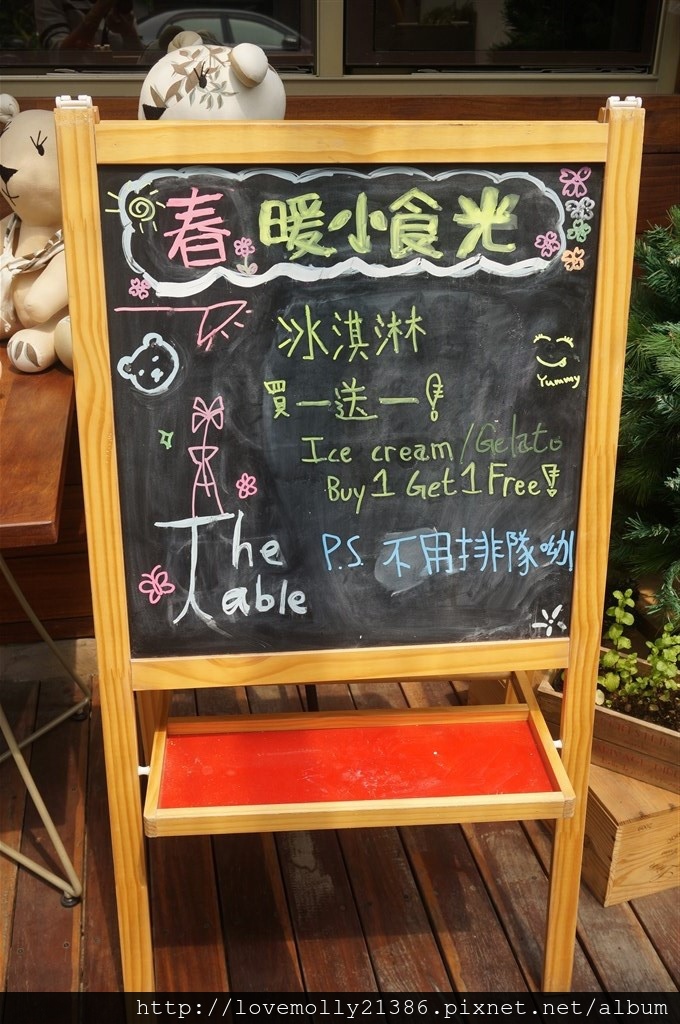 春暖小食光
冰淇淋
買一送一!
Yummy
Ice cream/Gelato
Buy 1 Get 1 Free!
The Table
P.S. 不用排隊呦
http://lovemolly21386.pixnet.net/album